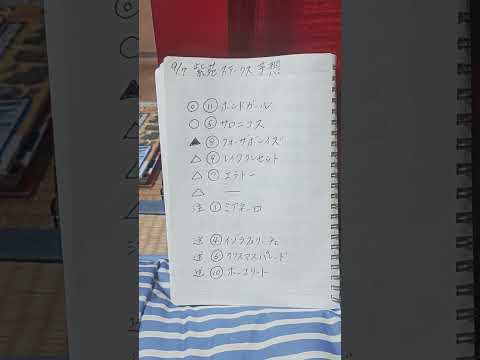 9/7 紫苑ステークス予想
◎ ⑪ ボンドガール
○ ⑤ サロニコス
▲ ⑧ フォーザボーイズ
△ ⑨ レイククレセント
△ ⑦ エラトー
△ ―
注 ① ミアネーロ
迷 ④ イゾラフェリーチェ
迷 ⑥ クリスマスパレード
迷 ⑩ ホーエリート